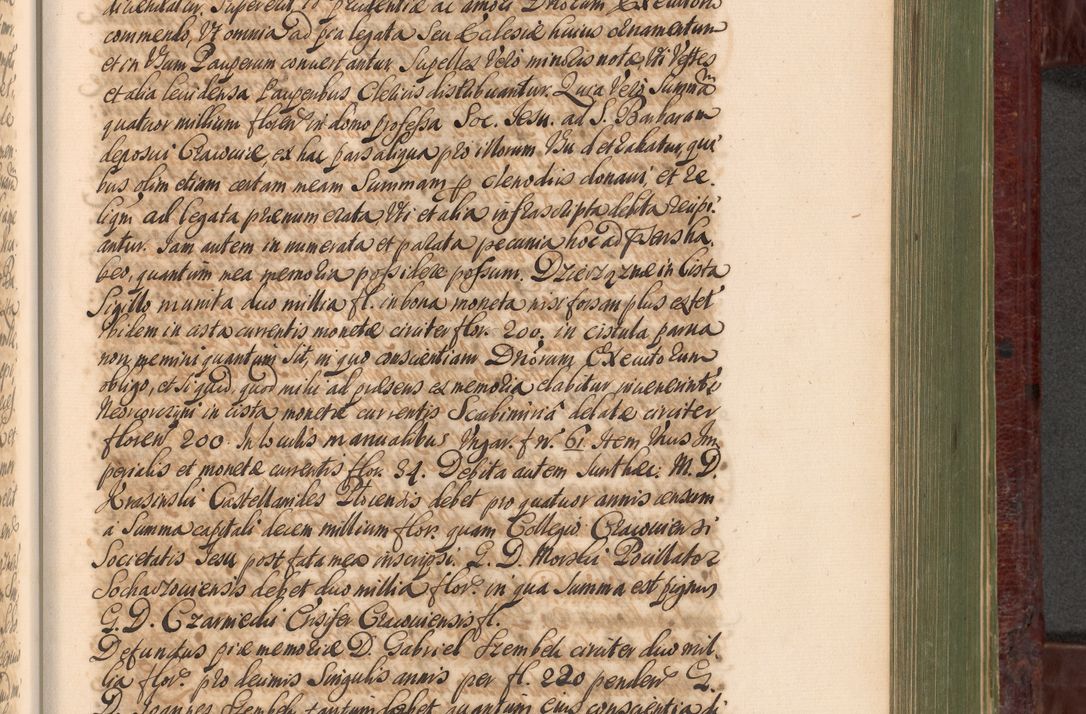 dividatur. Supereat, id prudentiæ ac amori Dnorum Executorū
commendo, Vt omnia ad pia legata Seu Ecclesiæ huius ornamentum
et in Vsum Pauperum convertantur. Supellex Vero minoris notæ Vti Vestes
et alia leuidensa Pauperibus Clericis distribuantur. Quia Vero Summā
quatuor millium floren in domo professa Soc. Iesu. ad S. Barbaram
deposui Cracoviæ, ex hac pars aliqua pro illorum Vsu detrahatur, qui
bus olim etiam certam meam Summam p clenodiis donaui et re.
liqui ad legata prænumerata, Vti et alia infrascripta debita recipi.
antur. Iam autem in numerata et parata pecunia hoc ad præns ha,
beo, quantum mea memoria possidere possum. Dzierząznæ in Cista
Sigillo munita duo millia fl. in bona moneta nisi forsan plus exset
Ibidem in cista currentis monetæ circiter flor. 200. in cistula parua
non memini quantum sit, in quo conscientiam Dnorum Executorum
obligo, et si quid, quod mihi ad præsens ex memoria elabitur inuenerint
in cista monetæ currentis debitæ circiter
floren 200. In loculis manualibus Vngar. f nr. 61. Item Vnus Im
perialis et monetæ currentis flor. 34. Debita autem sunt hæc. M. D.
Krasinski Castellanides Plocensis debet pro quatuor annis censum
a Summa capitali decem millium flor. quam Collegio Cracouiensi
Societatis Iesu post fata mea inscripsi. G. D. Morski Pocillator
Sochaczouiensis debet duo millia flor. in qua Summa est pignus
G. D. Czarnecki Ensifer Cracouiensis fl.
Defunctus piæ memoriæ D. Gabriel Szembek circiter duo mil.
lia flor. pro decimis Singulis annis per fl. 220 penden G.
D. Ioannes Szembek tantum debet quantum eius conscientia di